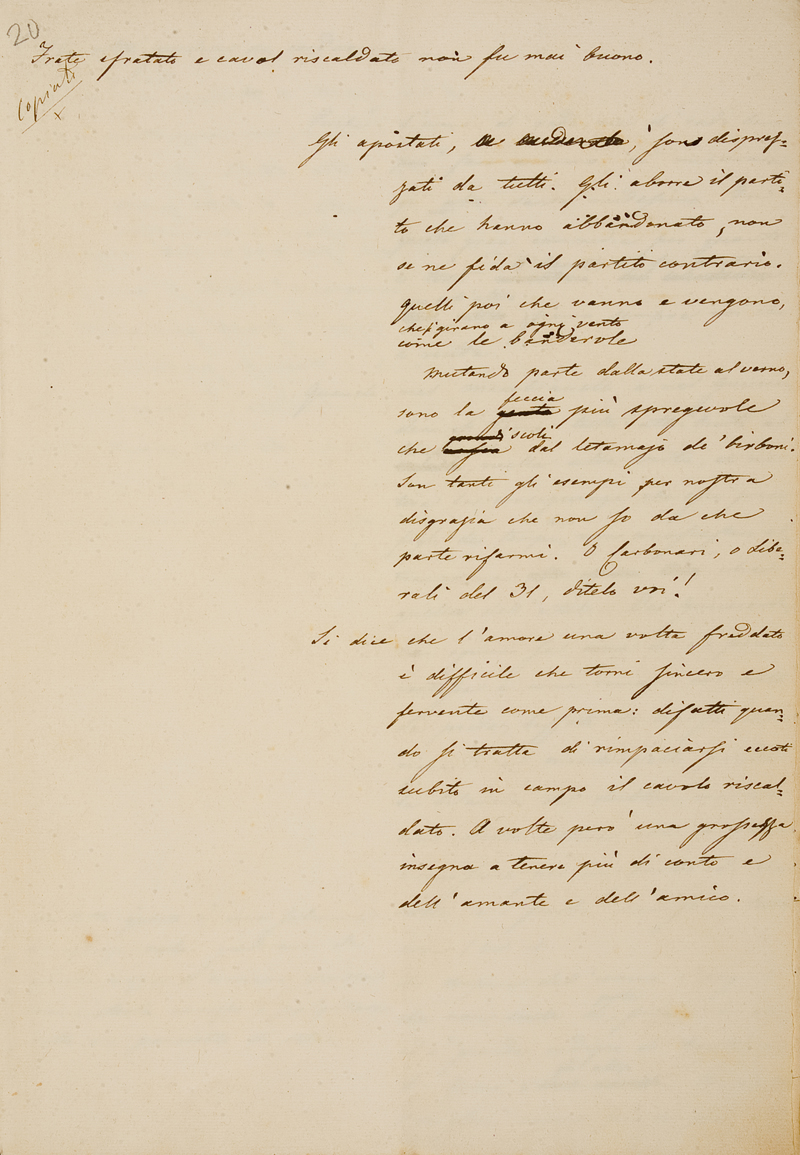 20
Frate sfratato e cavol riscaldato non fu mai buono.
Copiato
x
Gli apostati, son disprez-
zati da tutti. Gli aborre il parti-
to che hanno abbandonato, non
se ne fida il partito contrario.
Quelli poi che vanno e vengono,
che girano a ogni vento
come le banderole
Mutando parte dalla state al verno,
feccia
sono la gente più spregevole
scoli
che dal letamajo de' birboni.
Son tanti gli esempi per nostra
disgrazia che non so da che
parte rifarmi. O Carbonari, o libe-
rali del 31, ditelo voi!
Si dice che l'amore una volta freddato
è difficile che torni sincero e
fervente come prima: difatti quan-
do si tratta di rimpaciarsi eccoti
subito in campo il cavolo riscal-
dato. A volte però una grossezza
insegna a tenere più di conto e
dell'amante e dell'amico.